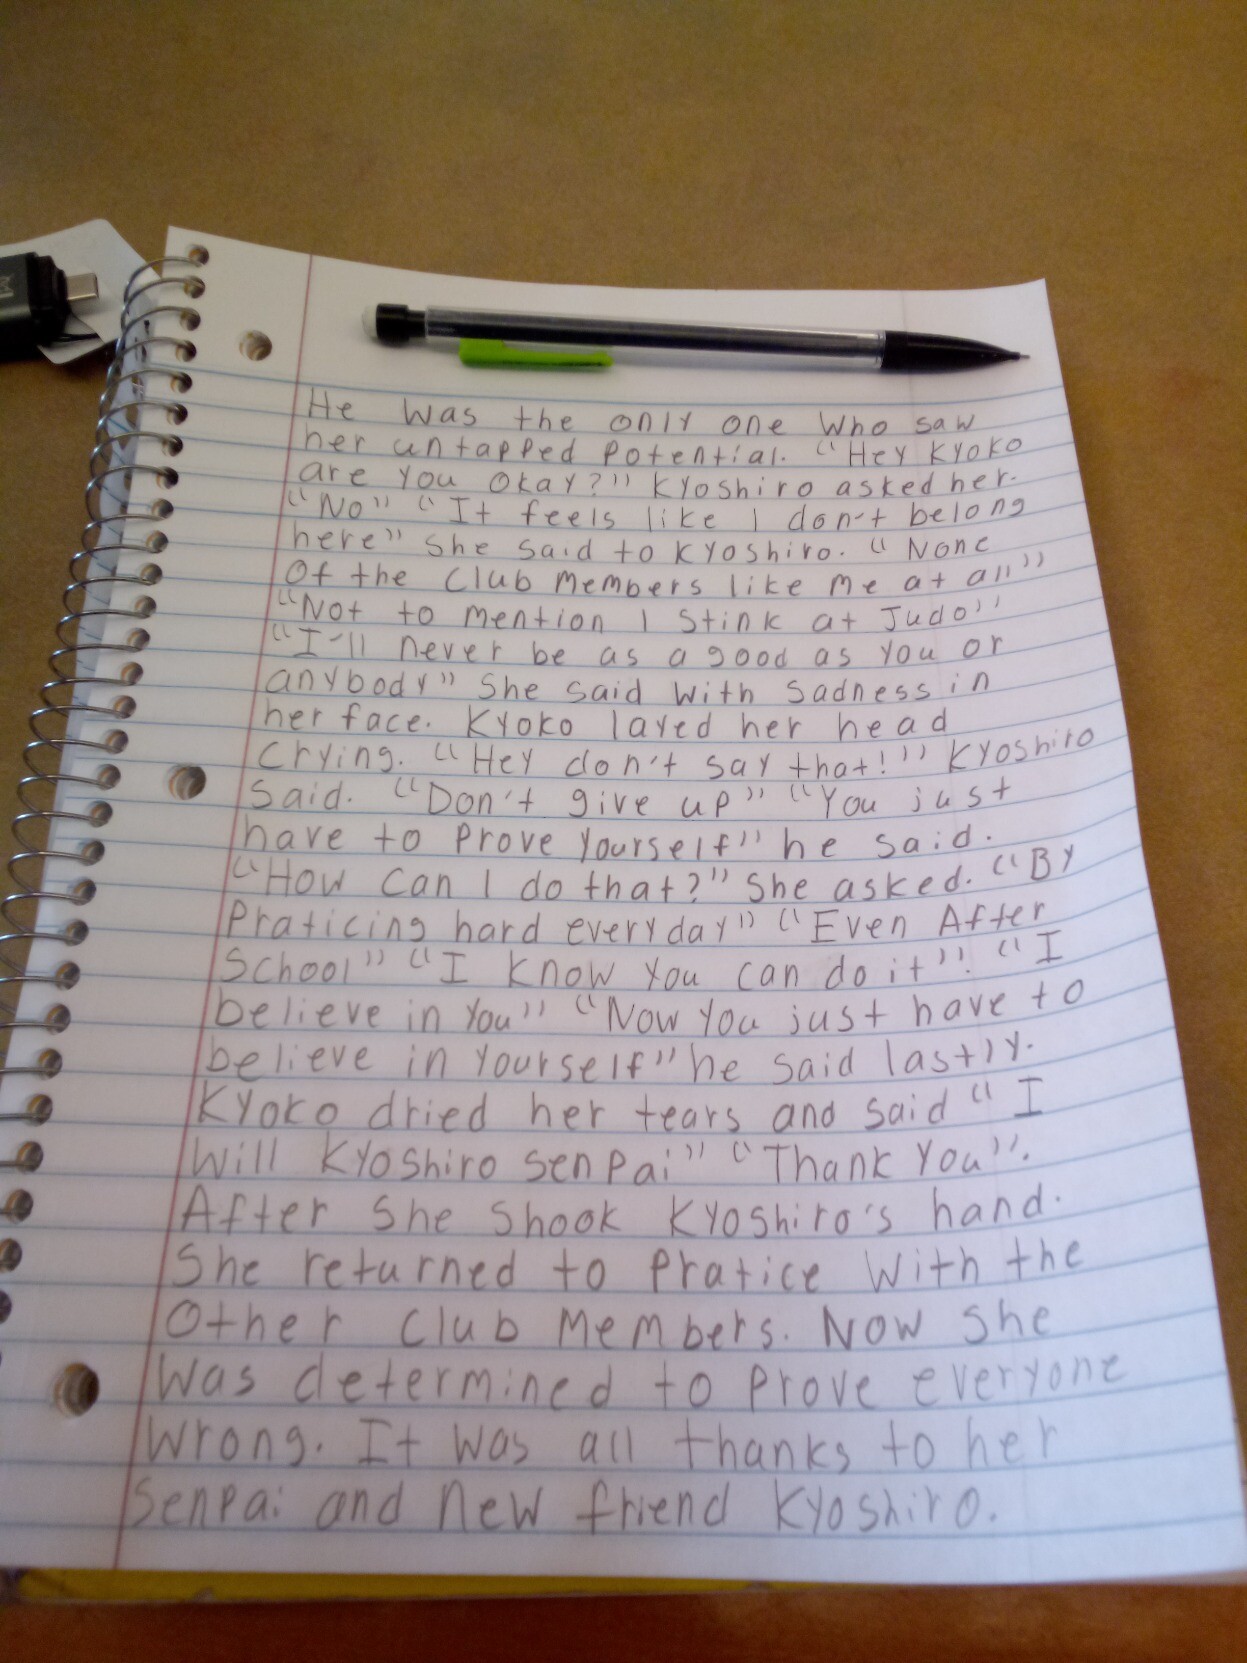 He was the only one who saw
her untapped potential. "Hey Kyoko
are you okay?" Kyoshiro asked her.
"No" "It feels like I don't belong
here" she said to Kyoshiro. "None
of the club members like me at all"
"Not to mention I stink at Judo"
"I'll never be as a good as you or
anybody" she said with sadness in
her face. Kyoko layed her head
crying. "Hey don't say that!" Kyoshiro
said. "Don't give up" "You just
have to prove yourself" he said.
"How can I do that?" she asked. "By
Praticing hard everyday" "Even After
School" "I know you can do it". "I
believe in you" "Now you just have to
believe in yourself" he said lastly.
Kyoko dried her tears and said "I
will Kyoshiro senpai" "Thank you".
After she shook Kyoshiro's hand.
She returned to pratice with the
other club members. Now she
was determined to prove everyone
wrong. It was all thanks to her
senpai and new friend Kyoshiro.